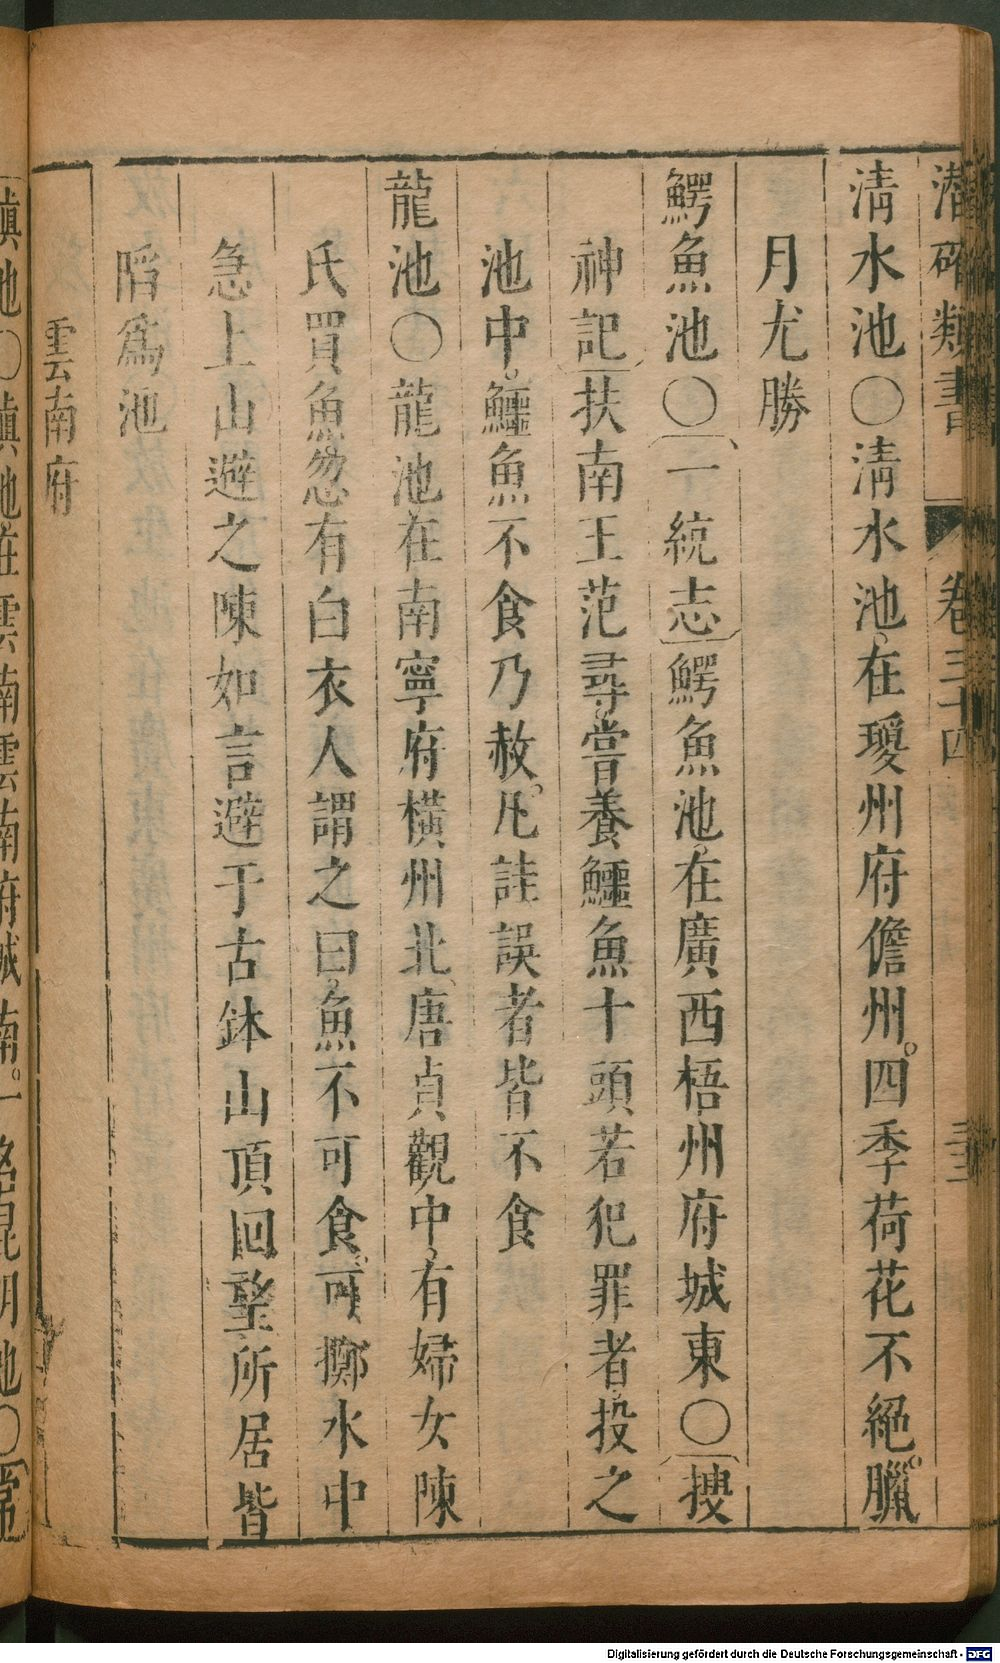 潛確類書 卷三十四
淸水池〇淸水池在瓊州府儋州四季荷花不絕臘
月尤勝
鰐魚池〇一統志鰐魚池在廣西梧州府城東〇搜
神記扶南王范尋嘗養鱷魚十頭若犯罪者投之
池中鱷魚不食乃赦凡詿誤者皆不食
龍池〇龍池在南寧府橫州北唐貞觀中有婦女陳
氏買魚忽有白衣人謂之曰魚不可食可擲水中
急上山避之陳如言避于古鉢山頂回望所居皆
陷爲池
雲南府
滇池〇滇池在雲南雲南府城南一名昆明池〇常
Digitalisierung gefördert durch die Deutsche Forschungsgemeinschaft - DFG